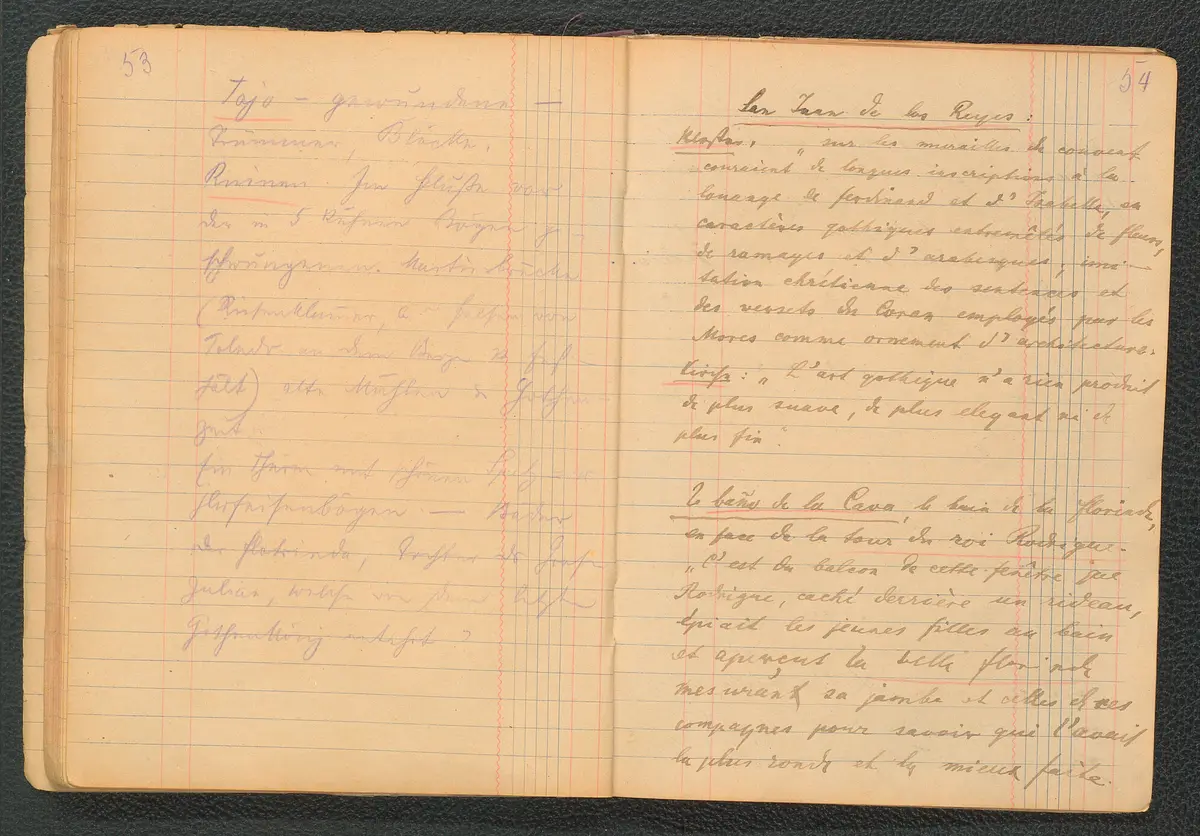 53
Tajo – gewundene –
Trümmer, Blöcke,
Ruinen. Im Fluße vor
der in 5 kühnen Bögen ge-
schwungenen Martinsbrücke
Felsen von
Toledo an dem Berge
hält) alte Mühlen der Gothen-
zeit.
Ein Thurm mit schönen Spitz-
Hufeisenbögen. – Bäder
der Florinda, Tochter des Grafen
Julian, welche von dem letzten
Gothenkönig entehrt?
54
San Juan de los Reyes:
Kloster. „sur les murailles de couvent
couraient de longues inscriptions à la
louange de ferdinand et d'Isabelle, en
caractères gothiques entremêlés de fleurs,
de ramages et d'arabesques, imi-
tation chrétienne des sentences et
des versets du Coran employés par les
Mores comme ornement d'architecture.
Kirche: „L'art gothique n'a rien produit
de plus suave, de plus elegant ni de
plus fin".
baño de la Cava, le bain de la florinde,
en face de la tour du roi Rodrigue.
„C'est du balcon de cette fenêtre que
Rodrigue, caché derrière un rideau,
épiait les jeunes filles au bain
et aperçut la belle florinde
mesurant sa jambe et celles de ses
compagnes pour savoir qui l'avait
la plus ronde et la mieux faite.